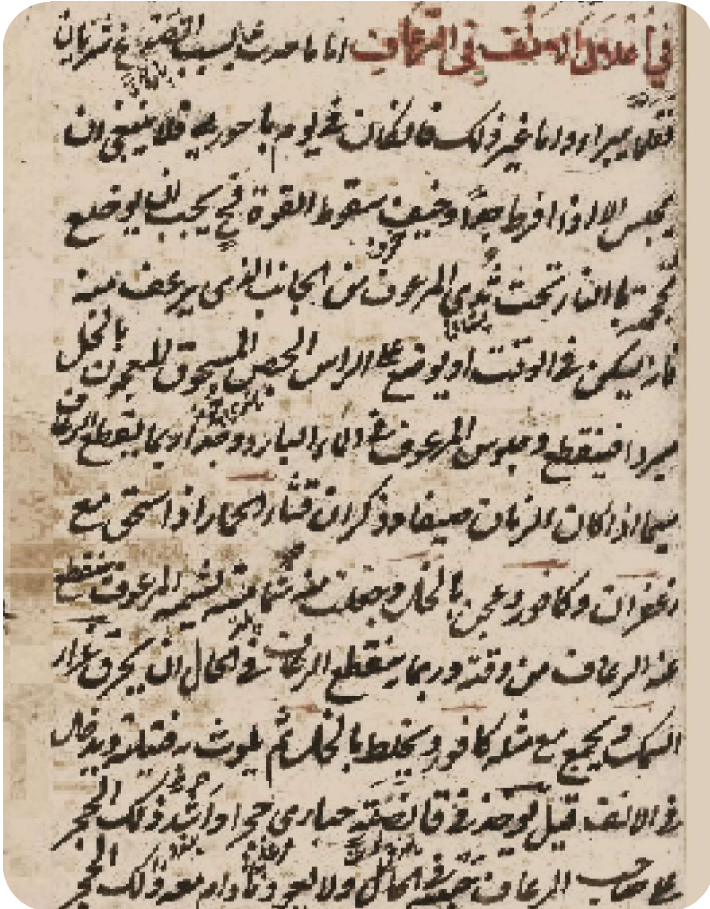 في اعلال الانف في الرعاف اما ما حدث على سبب انصداع شريان
فقلما يبرا واما غير ذلك فان كان في يوم باحوري فلا ينبغي ان
يحبس الا اذا افرط جدا وخيف سقوط القوة فح يجب ان يوضع
محجمة بالنار تحت ثدي المرعوف من الجانب الذي يرعف منه
فانه يسكن في الوقت او يوضع على الراس الجص المسحوق المعجون بالخل
مبردا فينقطع وجلوس المرعوف في الماء البارد جدا ربما يقطع الرعاف
سيما اذا كان الزمان صيفا وذكر ان قثاء الحمار اذا سحق مع
زعفران وكافور وعجن بالخل وجعلت منه شمامة لشمه المرعوف ينقطع
عنه الرعاف من وقته وربما ينقطع الرعاف في الحال ان يحرق غرار
السمك ويجمع مع مثله كافور ويخلط بالخل ثم يلوث به فتيلة ويدخل
في الانف قيل يوجد في قانصة حبارى حجر اذا شد ذلك الحجر
على صاحب الرعاف حبسه في الحال ولا يعود ما دام معه ذلك الحجر